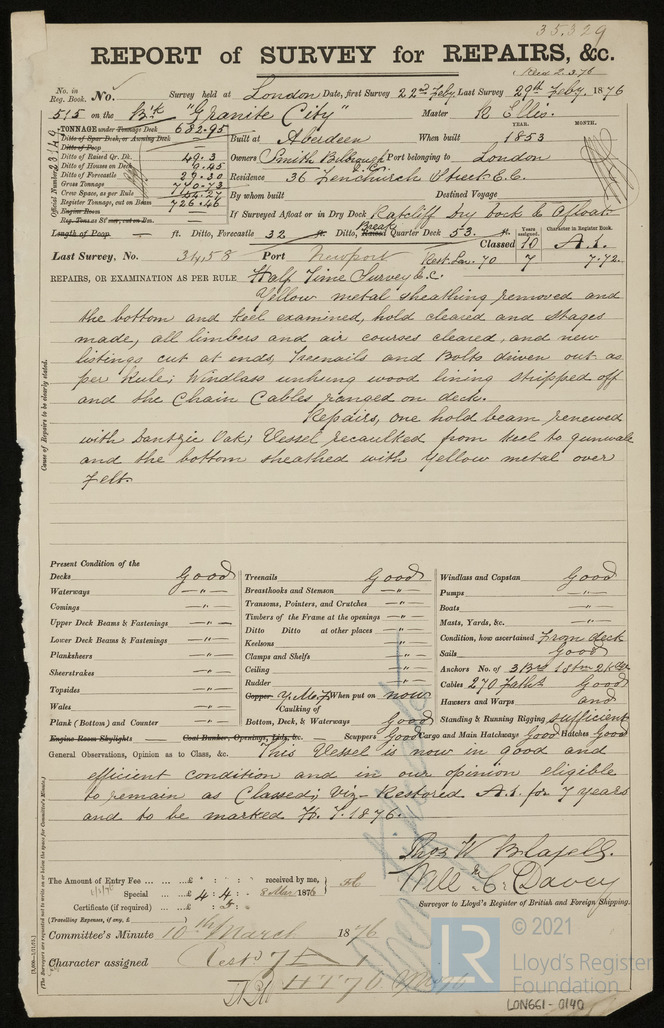 35.329
REPORT of SURVEY for REPAIRS, &c.
Recd 2.3.76
No. in Reg. Book. No. Survey held at London Date, first Survey 22nd Feby, Last Survey 29th Feby, 1876
515 on the Bk "Granite City" Master R Ellis.
TONNAGE under Tonnage Deck 682.95
Ditto of Spar Deck, or Awning Deck
Ditto of Poop
Ditto of Raised Qr. Dk. 49.3
Ditto of Houses on Deck 9.45
Ditto of Forecastle 29.30
Gross Tonnage 770.73
Crew Space, as per Rule 44.27
Register Tonnage, cut on Beam 726.46
Engine Room
Reg. Tons as St mr, cut on Bm.
Official Number 23149
Built at Aberdeen When built YEAR. 1853 MONTH.
Owners Smith Bilbrough & Co Port belonging to London
Residence 36 Fenchurch Street E.C.
By whom built Destined Voyage
If Surveyed Afloat or in Dry Dock Ratcliff Dry Dock & Afloat
Length of Poop ft. Ditto, Forecastle 32 ft. Ditto, Raised Break Quarter Deck 53. ft.
Years assigned. Character in Register Book.
Classed 10 A.1.
Last Survey, No. 3458 Port Newport Rest. Lon. 70 7 7.72.
REPAIRS, OR EXAMINATION AS PER RULE Half Time Survey &.c.
Yellow metal sheathing removed and
the bottom and keel examined, hold cleared and stages
made, all limbers and air courses cleared, and new
listings cut at ends, Treenails and Bolts driven out as
per Rule; Windlass unhung wood lining stripped off
and the Chain Cables ranged on deck.
Repairs, one hold beam renewed
with Dantzic Oak; Vessel recaulked from keel to gunwale
and the bottom sheathed with Yellow metal over
felt.
Cause of Repairs to be clearly stated.
Present Condition of the
Decks Good
Waterways —"—
Comings —"—
Upper Deck Beams & Fastenings —"—
Lower Deck Beams & Fastenings —"—
Planksheers —"—
Sheerstrakes —"—
Topsides —"—
Wales —"—
Plank (Bottom) and Counter —"—
Treenails Good
Breasthooks and Stemson —"—
Transons, Pointers, and Crutches —"—
Timbers of the Frame at the openings —"—
Ditto Ditto at other places —"—
Keelsons —"—
Clamps and Shelfs —"—
Ceiling —"—
Rudder —"—
Copper Y.M. When put on now
Caulking of
Bottom, Deck, & Waterways Good
Windlass and Capstan Good
Pumps —"—
Boats —"—
Masts, Yards, &c. —"—
Condition, how ascertained From deck
Sails Good
Anchors No. of 3 Brs 1 Stm 2 Kdgs
Cables 270 faths Good
Hawsers and Warps and
Standing & Running Rigging sufficient
Engine Room Skylights Coal Bunker, Openings, Lids, &c. Scuppers Good Cargo and Main Hatchways Good Hatches Good
General Observations, Opinion as to Class, &c. This Vessel is now in good and
efficient condition and in our opinion eligible
to remain as Classed; Viz Restored A.1. for 7 years
and to be marked H.T. 1876.
(The Surveyors are requested not to write on or below the space for Committee's Minute.)
Will C. Davey
Surveyor to Lloyd's Register of British and Foreign Shipping.
The Amount of Entry Fee ... ... £ : : received by me,
Special ... £ 4 : 4 : 8 Mar 1876
Certificate (if required) ... £ : 5 :
(Travelling Expenses, if any, £ )
Committee's Minute 10th March 1876
Character assigned Rest 7 A 1
HT 76
© 2021
LR
Lloyd's Register
Foundation
LON661-0140